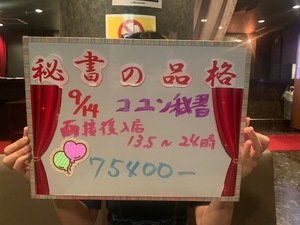 秘書の品格
9/14 コユン秘書
面接後入店
13.5～24時
75400ー